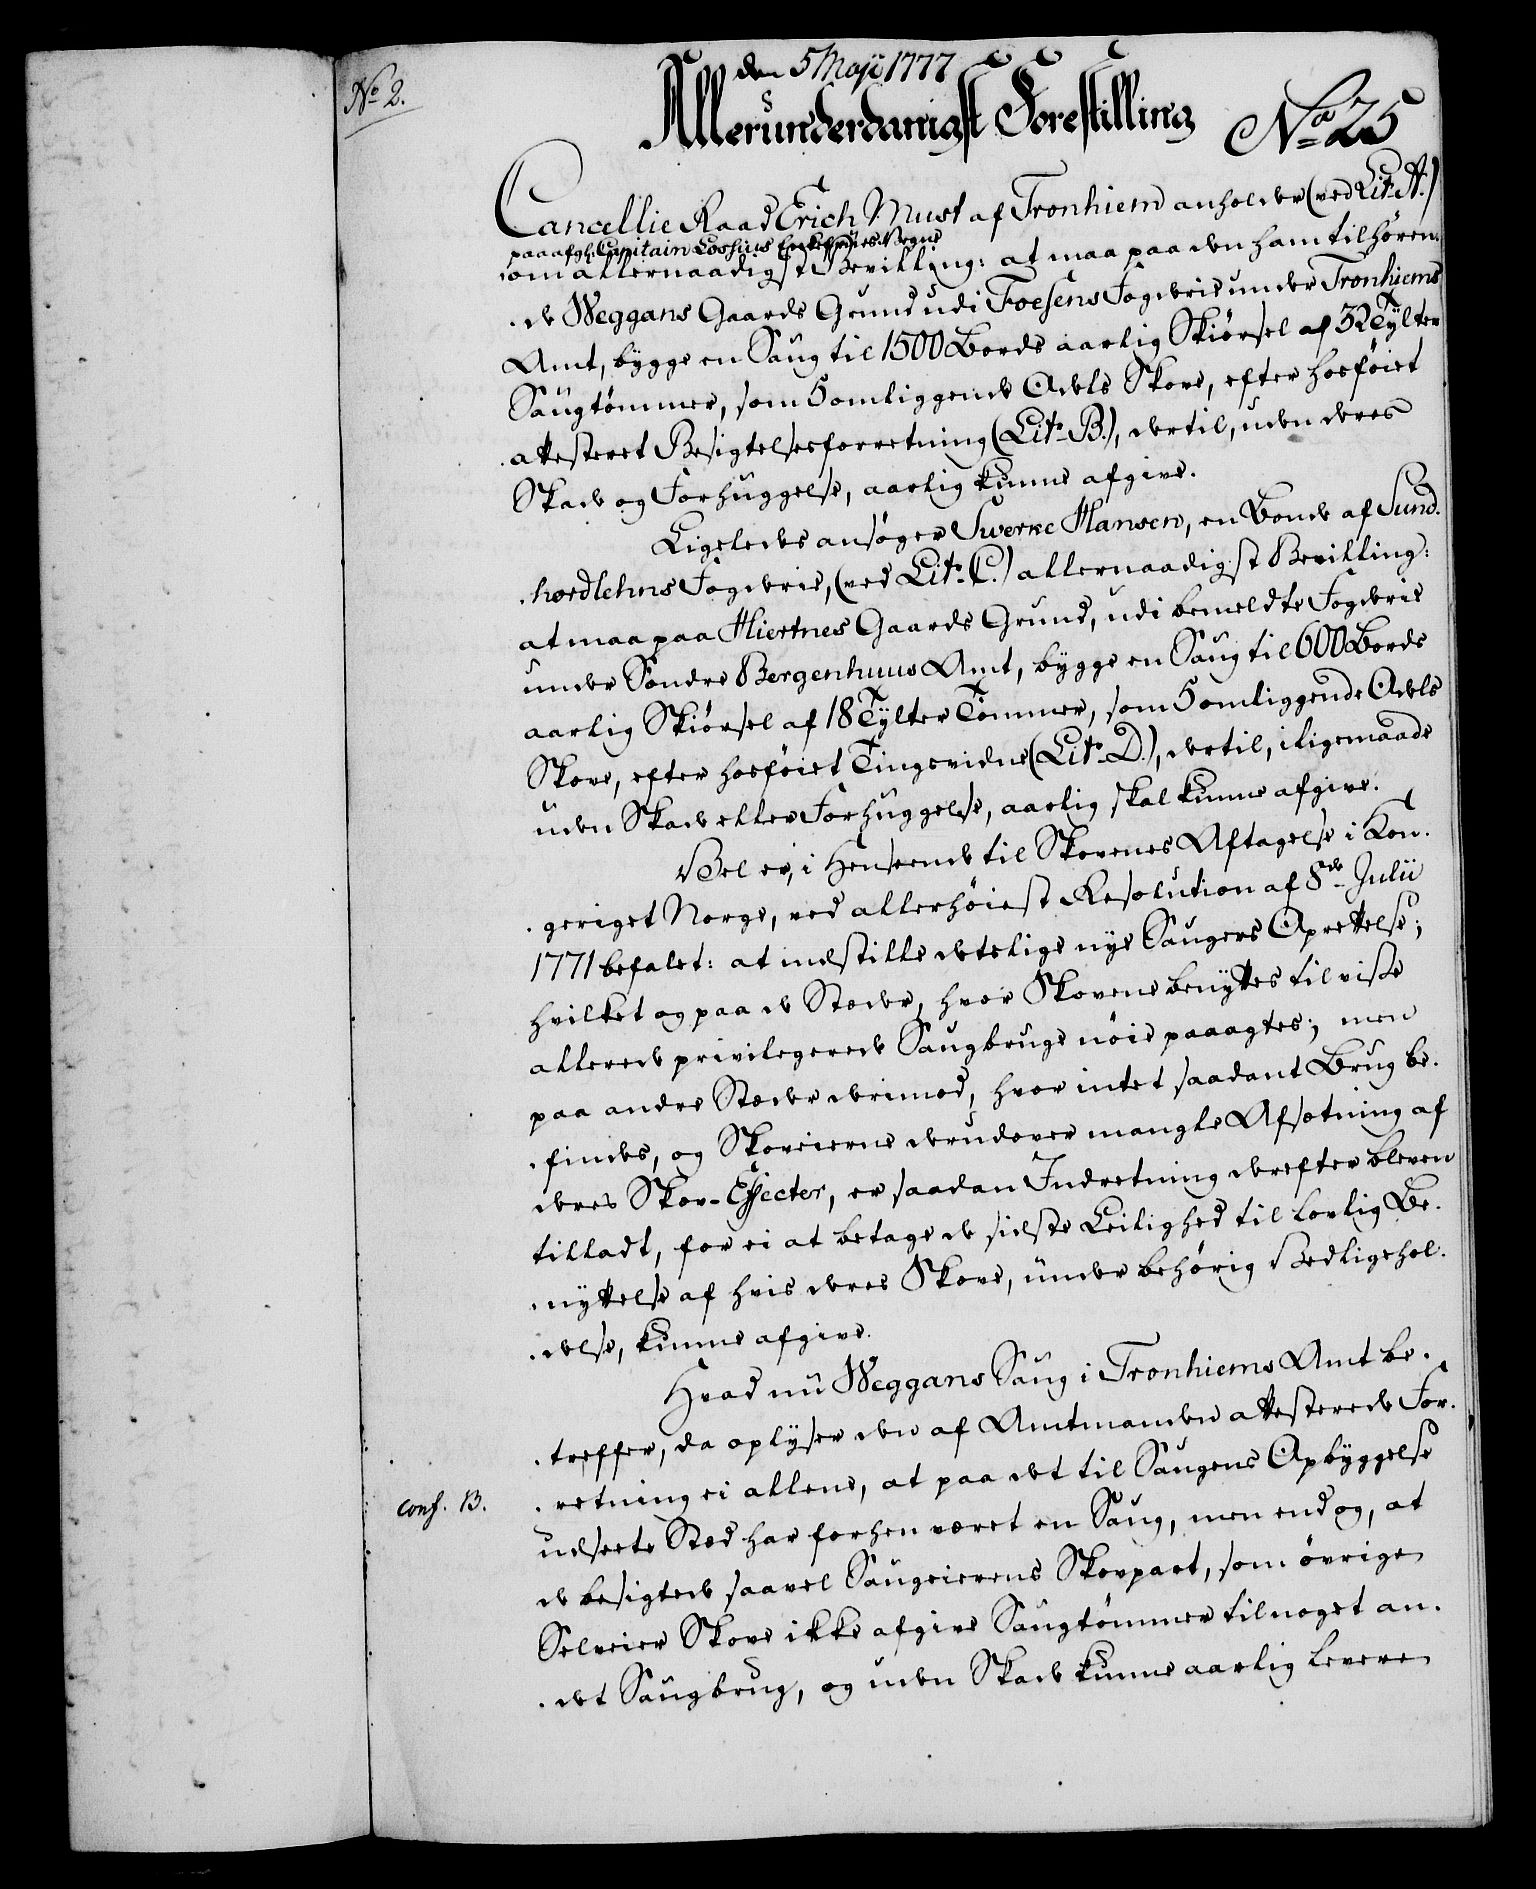 No 2.
den 5 Maji 1777
Allerunderdanigst Forestilling No 25
Cancellie Raad Erich Must af Tronhiem anholder (ved Lit: A.)
paa afg: Capitain Lossius Enkefrues Vegne
om allernaadigst Bevilling: at maa paa den ham tilhören-
de Weggans Gaards Grund udi Foesens Fogderie under Tronhiems
Amt, bygge en Saug til 1500 Bords aarlig Skiörsel af 32 Tylter
Saugtömmer, som 5 omliggende Odels Skove, efter hosföiet
attesteret Besigtelsesforretning (Lit: B.), dertil, uden deres
Skade og Forhuggelse, aarlig kunne afgive.
Ligeledes ansöger Swerke Hansen, en Bonde af Sund-
hordlehns Fogderie, (ved Lit: C.) allernaadigst Bevilling:
at maa paa Hiertnes Gaards Grund, udi bemeldte Fogderie
under Söndre Bergenhuus Amt, bygge en Saug til 600 Bords
aarlig Skiörsel af 18 Tylter Tömmer, som 5 omliggende Odels
Skove, efter hosföiet Tingsvidne (Lit: D.), dertil, iligemaade
uden Skade eller Forhuggelse, aarlig skal kunne afgive.
Vel er, i Henseende til Skovenes Aftagelse i Kon-
geriget Norge, ved allerhöieste Resolution af 8de Julii
1771 befalet: at indstille deslige nye Saugers Oprettelse;
hvilket og paa de Stæder, hvor Skovene benyttes til visse
allerede privilegerede Saugbruge nöie paaagtes; men
paa andre Stæder derimod, hvor intet saadant Brug be-
findes, og Skoveierne derudover mangle Afsætning af
deres Skov-Effecter, er saadan Indretning derefter bleven
tilladt, for ei at betage de sidste Leilighed til lovlig Be-
nyttelse af hvis deres Skove, under behörig Vedligehol-
delse, kunne afgive.
Hvad nu Weggans Saug i Tronhiems Amt be-
treffer, da oplyser den af Amtmanden attesterede For-
conf. B.
retning ei allene, at paa det til Saugens Opbyggelse
udseete Sted har forhen været en Saug, men endog, at
de besigtede saavel Saugeierens Skovpart, som övrige
Selveier Skove ikke afgive Saugtömmer til noget an-
det Saugbrug, og uden Skade kunne aarlig levere